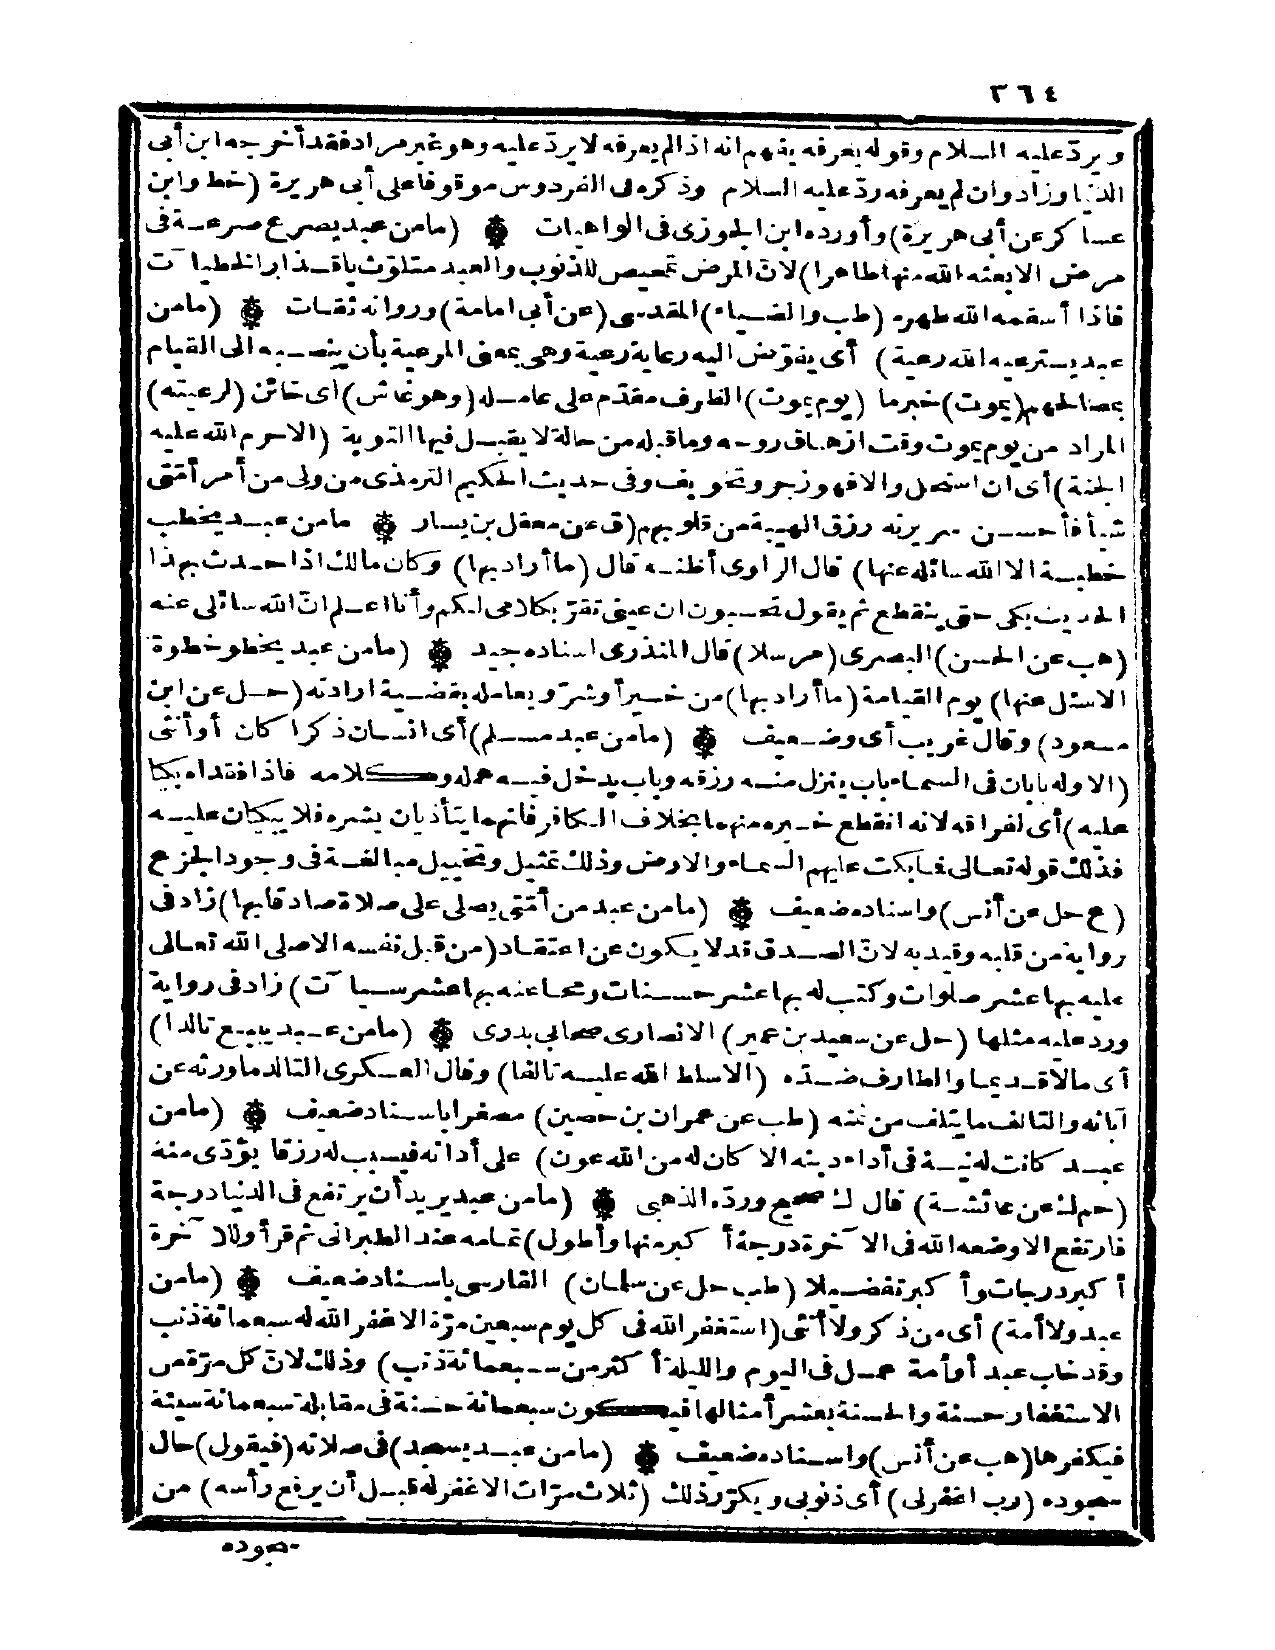 ٣٦٤
وردّ عليه السلام وقوله يعرفه يفهم انه اذا لم يعرفه لا يردّ عليه وهو غير مراد فقد أخرجه ابن أبى
الدنيا وزاد وان لم يعرفه ردّ عليه السلام وذكره فى الفردوس موقوفا على أبى هريرة (خط وابن
عساكر عن أبى هريرة) وأورده ابن الجوزى فى الواهيات ۞ (مامن عبد يصرع صرعة فى
مرض الا بعثه الله منها طاهرا) لانّ المرض تمحيص للذنوب والعبد متلوّث بأقذار الخطيا ّت
فاذا أسقمه الله طهره (طب والضياء) المقدسى (عن أبى امامة) ورواته ثقات ۞ (مامن
عبد يسترعيه الله رعية) أى يفوّض اليه رعاية رعية وهى بمعنى المرعية بأن ينصبه الى القيام
بمصالحهم (يموت) خبر ما (يوم يموت) الظرف مقدّم على عامله (وهو غاش) أى خائن (لرعيته)
المراد من يوم يموت وقت ازهاق روحه وماقبله من حالة لا يقبل فيها التوبة (الا حرم الله عليه
الجنة) أى ان استحل والا فهو زجر وتخويف وفى حديث الحكيم الترمذى من ولى من أمر أمّتى
شيأ فأحسن سريرته رزق الهيبة من قلوبهم (ق عن معقل بن يسار ۞ مامن عبد يخطب
خطبة الا الله سائله عنها) قال الراوى أظنه قال (ما أراد بها) وكان مالك اذا حدث بهذا
الحديث بكى حتى ينقطع ثم يقول تحسبون ان عينى تقرّ بكلامى لكم وأنا اعلم انّ الله سائلى عنه
(هب عن الحسن) البصرى (مرسلا) قال المنذرى اسناده جيد ۞ (مامن عبد يخطو خطوة
الا سئل عنها) يوم القيامة (ما أراد بها) من خير أو شرّ ويعامله بقضية ارادته (حل عن ابن
مسعود) وقال غريب أى وضعيف ۞ (مامن عبد مسلم) أى انسان ذكرا كان أو أنثى
(الا وله بابان فى السماء باب ينزل منه رزقه وباب يدخل فيه عمله وكلامه فاذا فقداه بكا
عليه) أى لفراقه لانه انقطع خيره منهما بخلاف الكافر فانهما يتأذيان بشره فلا يبكيان عليه
فذلك قوله تعالى فما بكت عليهم السماء والارض وذلك تمثيل وتخييل مبالغة فى وجود الجزع
(ع حل عن أنس) واسناده ضعيف ۞ (مامن عبد من أمّتى يصلى على صلاة صادقا بها) زاد فى
رواية من قلبه وقيد به لانّ الصدق قد لا يكون عن اعتقاد (من قبل نفسه الا صلى الله تعالى
عليه بها عشر صلوات وكتب له بها عشر حسنات ومحا عنه بها عشر سيا ّت) زاد فى رواية
ورد عليه مثلها (حل عن سعيد بن عمير) الانصارى صحابى بدرى ۞ (مامن عبد يبيع تالدا)
أى مالا قديما والطارف ضدّه (الا سلط الله عليه تالفا) وقال العسكرى التالد ما ورثه عن
آبائه والتالف ما يتلف من ثمنه (طب عن عمران بن حصين) مصغرا باسناد ضعيف ۞ (مامن
عبد كانت له نية فى أداء دينه الا كان له من الله عون) على أدائه فيسبب له رزقا يؤدّى منه
(حم ك عن عائشة) قال ك صحيح وردّه الذهبى ۞ (مامن عبد يريد أن يرتفع فى الدنيا درجة
فارتفع الا وضعه الله فى الا ّخرة درجة أكبر منها وأطول) تمامه عند الطبرانى ثم قرأ وللا ّخرة
أكبر درجات وأكبر تفضيلا (طب حل عن سلمان) الفارسى باسناد ضعيف ۞ (مامن
عبد ولا أمة) أى من ذكر ولا أنثى (استغفر الله فى كل يوم سبعين مرّة الا غفر الله له سبعمائة ذنب
وقد خاب عبد أو أمة عمل فى اليوم والليلة أكثر من سبعمائة ذنب) وذلك لانّ كل مرّة من
الاستغفار حسنة والحسنة بعشر أمثالها فيكون سبعمائة حسنة فى مقابلة سبعمائة سيئة
فيكفرها (هب عن أنس) واسناده ضعيف ۞ (مامن عبد يسجد) فى صلاته (فيقول) حال
سجوده (رب اغفرلى) أى ذنوبى ويكرّر ذلك (ثلاث مرّات الا غفر له قبل أن يرفع رأسه) من
سجوده